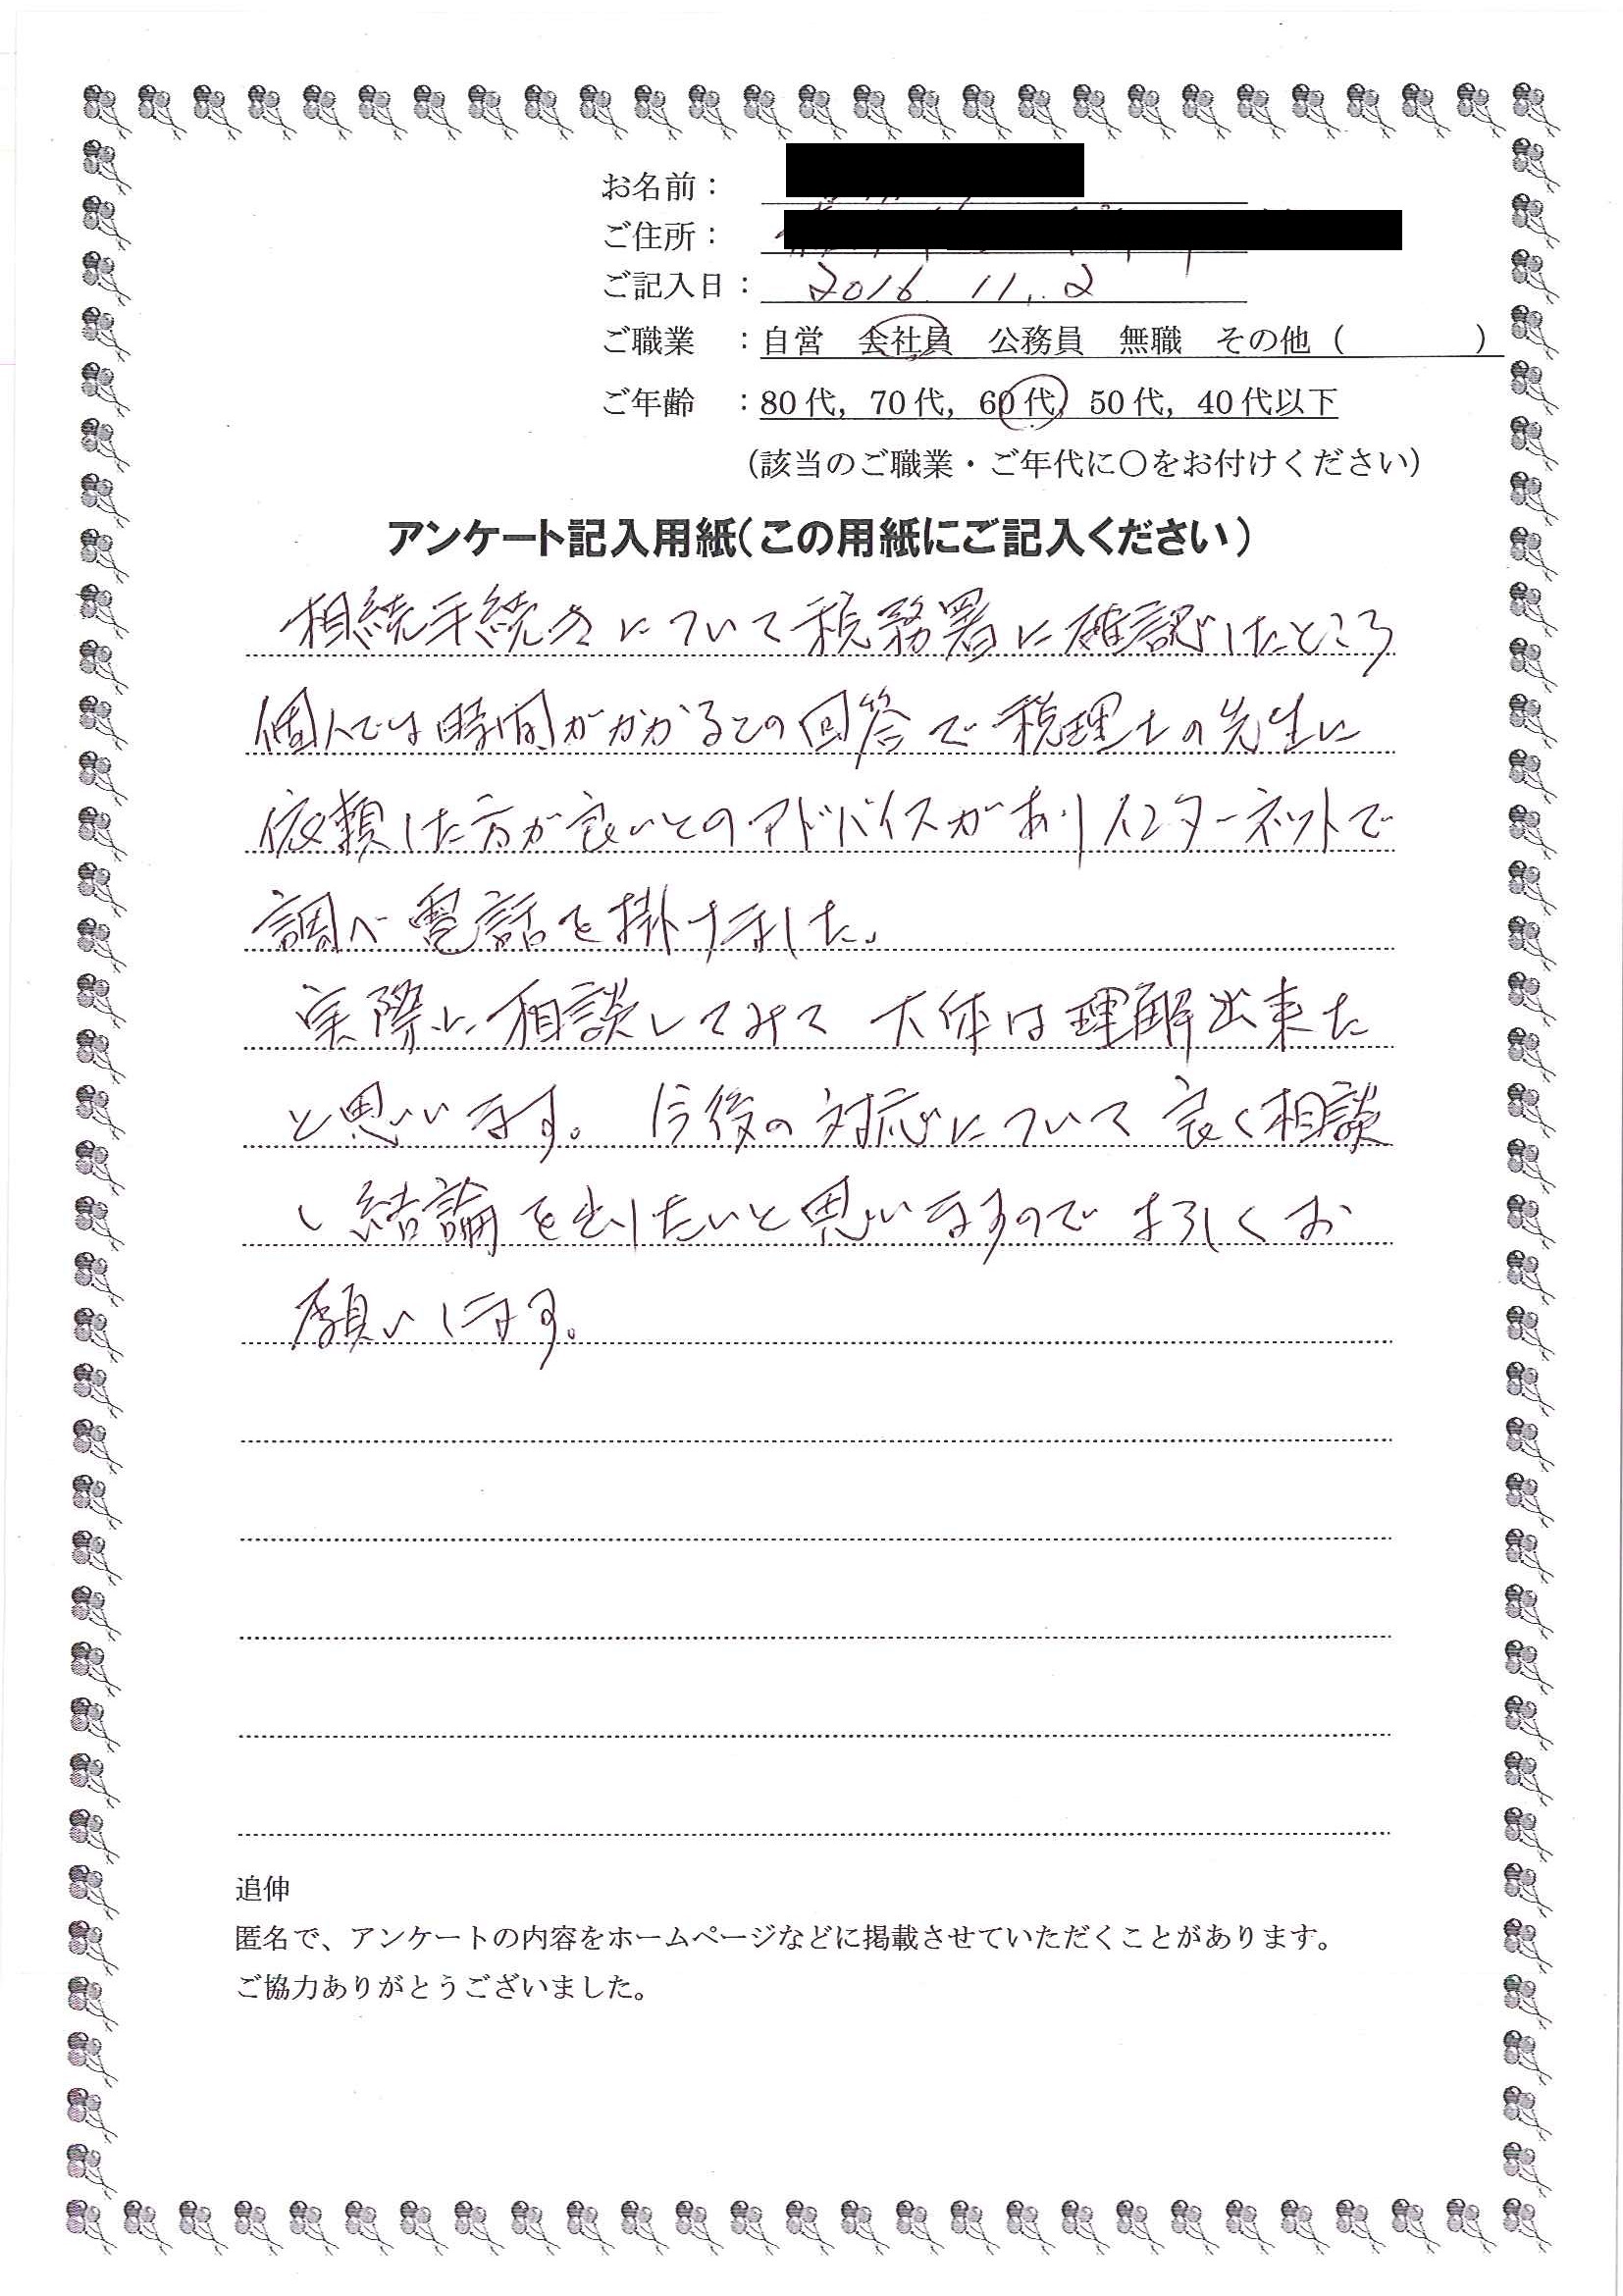 お名前：
ご住所：
ご記入日：2016 11.2
ご職業　：自営　会社員　公務員　無職　その他（　　　　）
ご年齢　：80代，70代，60代，50代，40代以下
（該当のご職業・ご年代に〇をお付けください）
アンケート記入用紙（この用紙にご記入ください）
相続手続きについて税務署に確認したところ
個人では時間がかかるとの回答で税理士の先生に
依頼した方が良いとのアドバイスがありインターネットで
調べ電話を掛けました。
実際に相談してみて大体は理解出来た
と思います。今後の対応について良く相談
し結論を出したいと思いますのでよろしくお
願いします。
追伸
匿名で、アンケートの内容をホームページなどに掲載させていただくことがあります。
ご協力ありがとうございました。